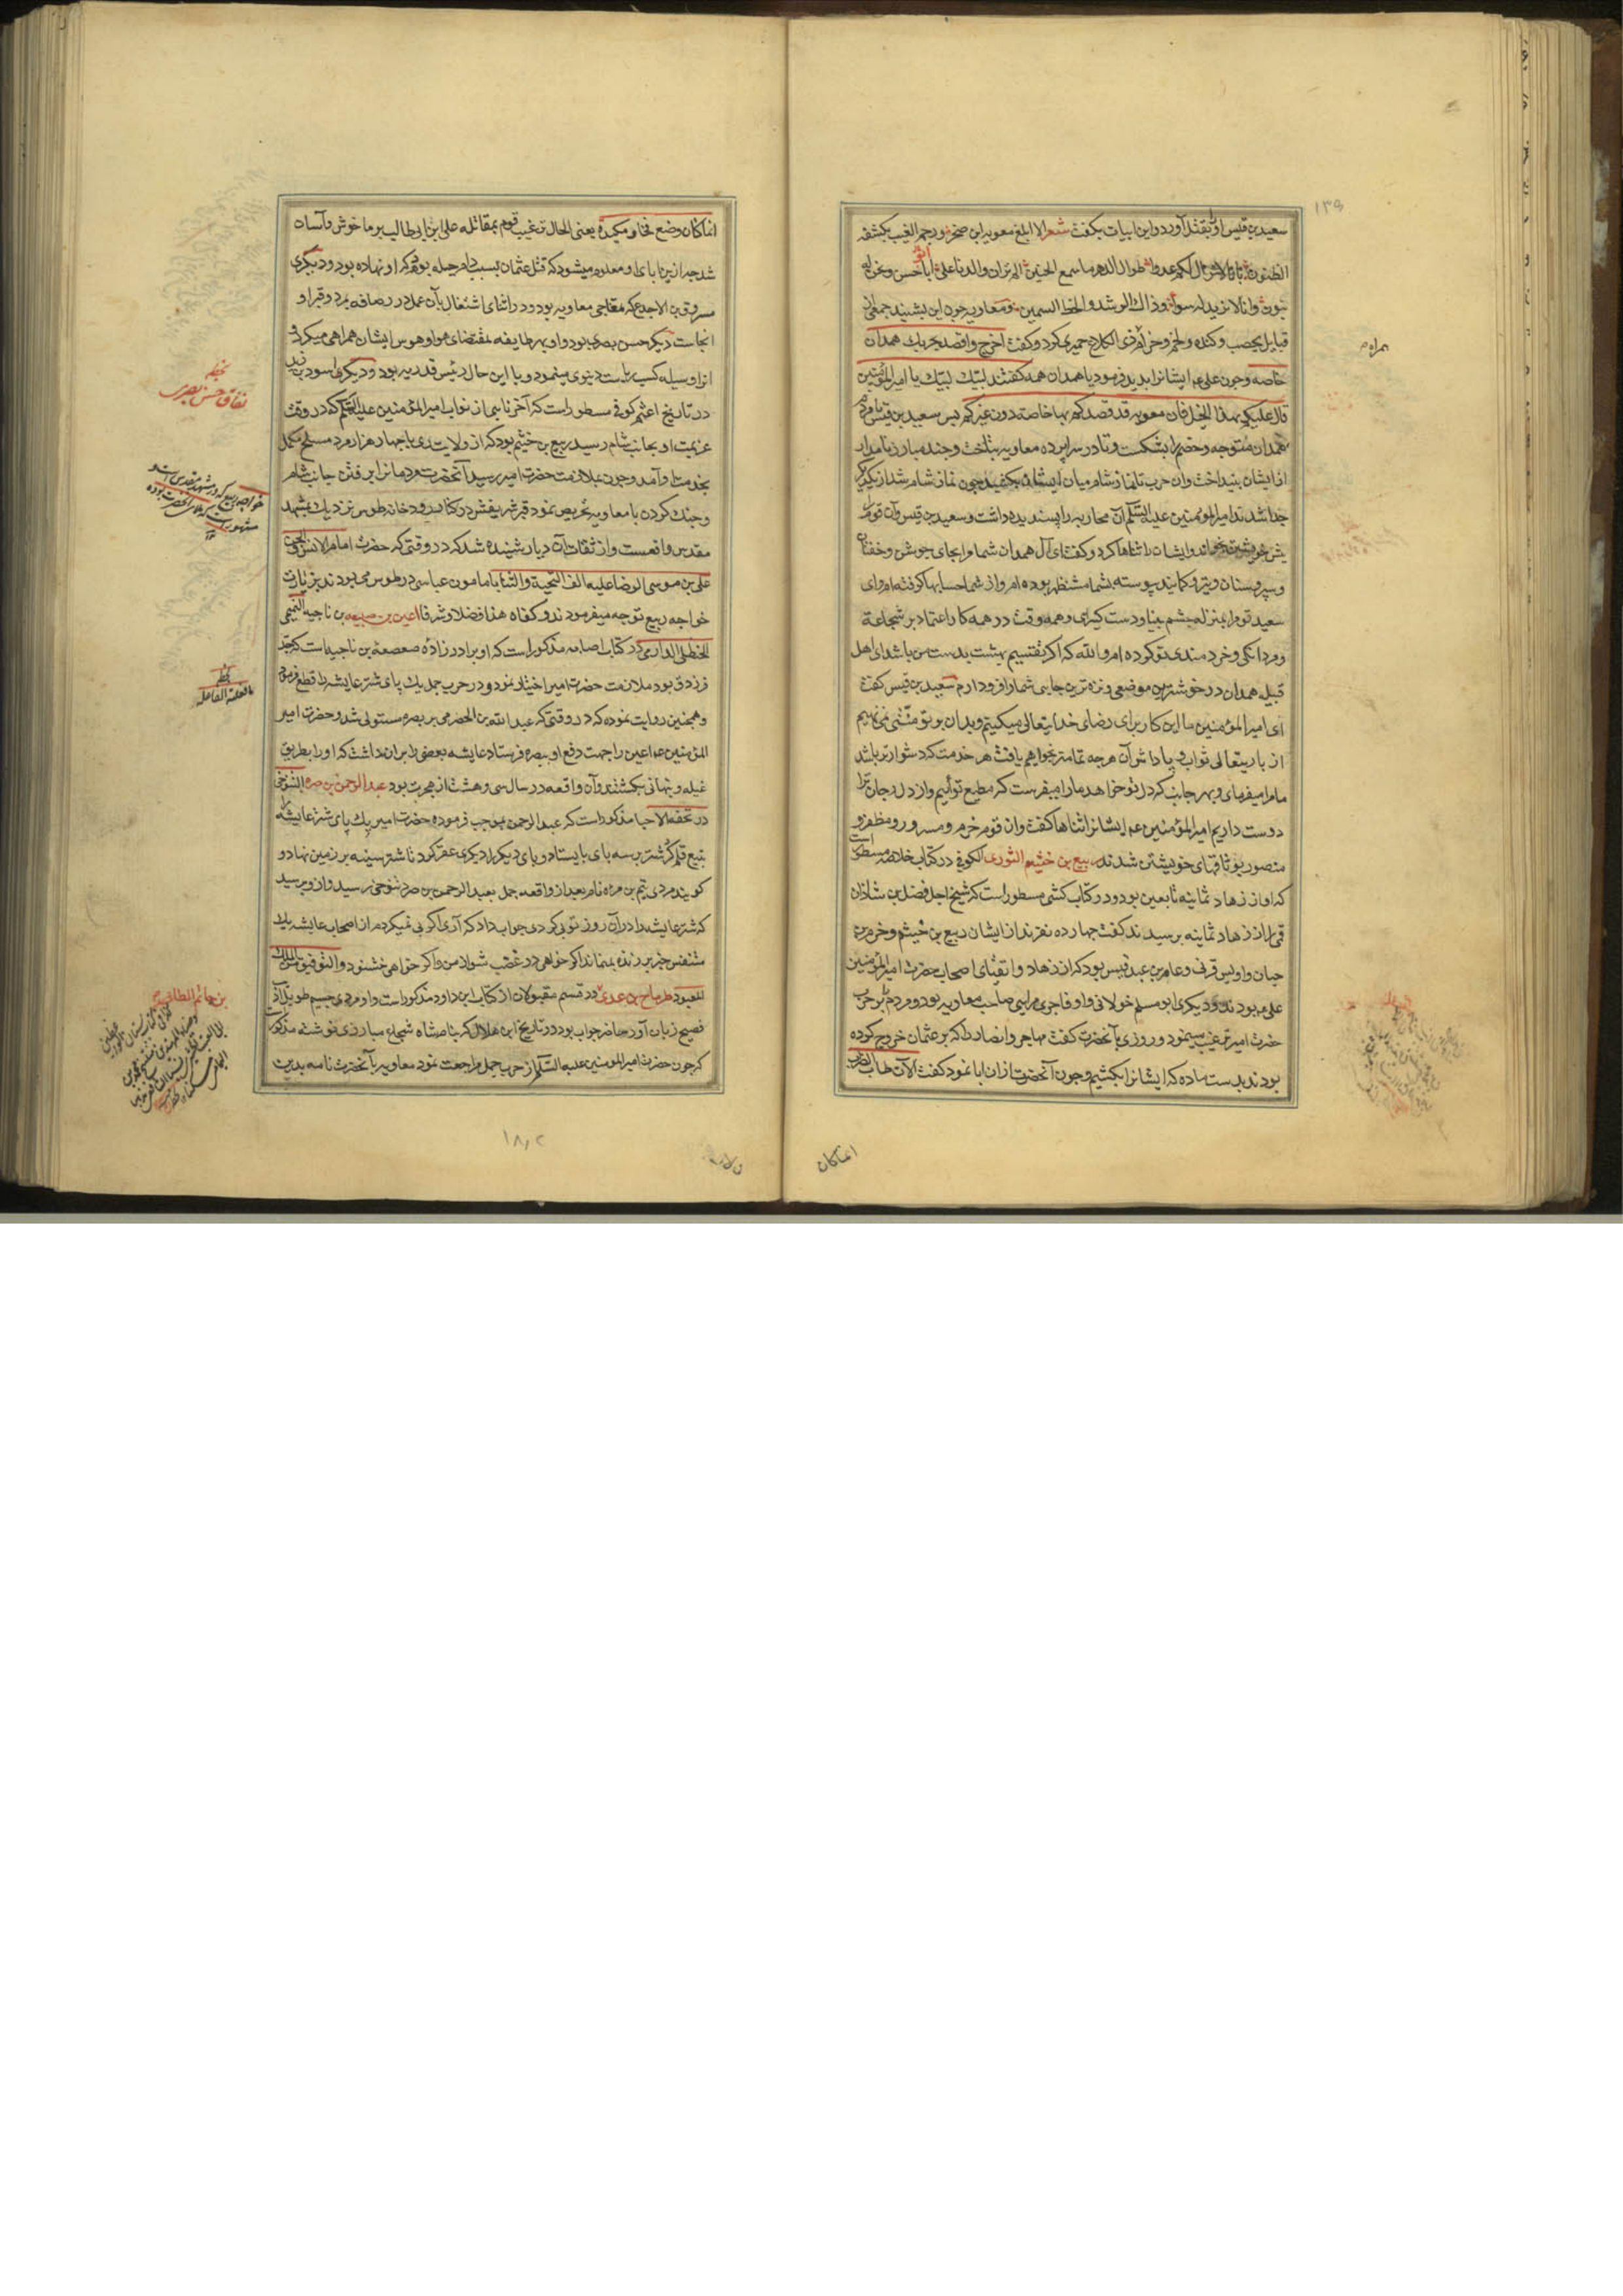 سعید بن قیس او را بقتل آورد و این ابیات بکفت شعر الا ابلغ معویه ابن صخر و رجم الغیب یکشفه
الظنون بانا لا نزال لکم عدوا طوال الدهر ما سمع الحنین الم تران والدنا علی ابا حسن و نحن له
بنون وانا لا نرید به سواه وذاک الرشد والحظ السمین و معاویه چون این بشنید جمعی از
قبایل یحصب و کنده و لخم و جذام ذی الکلاع حمیری کرد و کفت اخرج واقصد بحربک همدان
خاصه و چون علی ع ایشانرا بدید فرمود یا همدان همه کفتند لبیک لبیک یا امیرالمؤمنین
قال علیکم بهذا الخیل فان معویه قد قصدکم بها خاصه دون غیرکم پس سعید بن قیس با مردم
همدان متوجه و خصم را بشکست و تا در سراپرده معاویه بتاخت و چند مبارز نامدار
از ایشان بنیداخت وان حرب تا نماز شام میان ایشان بکشید چون نماز شام شد از یکدیگر
جدا شدند امیرالمومنین علیه السلم آن محاربه را پسندیده داشت و سعید بن قیس وآن قوم را
پیش خویشتن خواند و ایشان را ثناها کرد و کفت ای آل همدان شما مرا بجای جوشن و خفتان
و سپر و سنان و تیر و کمانید پیوسته بشما مستظهر بوده ام و از شما حسابها کرفته ام و ای
سعید تو مرا بمنزله چشم بینا و دست کیرای و همه وقت در همه کار اعتماد بر شجاعت
و مردانکی و خردمندی تو کرده ام و الله که اکر تقسیم بهشت بدست من باشد ای اهل
قبیله همدان در خوشترین موضعی و نزه ترین جایی شما را فرود ارم سعید بن قیس کفت
ای امیرالمؤمنین ما این کار برای رضای خدایتعالی میکنیم و بدان بر تو منتی نمی نهیم
از باریتعالی ثواب و پاداش آن هرچه تمامتر خواهیم یافت هر خدمت که دشوارتر باشد
ما را میفرمای و بهر جانب که دل تو خواهد ما را میفرست که مطیع توایم و از دل و جان ترا
دوست داریم امیرالمؤمنین ع م ایشانرا ثناها کفت وان قوم خرم و مسرور و مظفر و
منصور بوثاقهای خویشتن شدند ربیع بن خثیم الثوری الکوفی در کتاب خلاصه مسطور است
که او از زهاد ثمانیه تابعین بود و در کتاب کشی مسطور است که شیخ اجل فضل بن شاذان
قمی را از زهاد ثمانیه پرسیدند کفت چهارده نفرند از ایشان ربیع بن خیثم و هرم بن
حیان و اویس قرنی و عامر بن عبد قیس بود که از زهاد و اتقیای اصحاب حضرت امیرالمؤمنین
علی ع بودند و دیکری ابو مسلم خولانی و او فاجری مرایی صاحب معاویه بود و مردم را بر حرب
حضرت امیر ترغیب مینمود و روزی با آنحضرت کفت مهاجر و انصار را که بر عثمان خروج کرده
بودند بدست ما ده که ایشانرا بکشیم و چون آنحضرت ازان ابا نمود کفت الآن طاب الضراب
همراه م
۱۳۹
انما کان
انما کان وضع فخا و مکیدة یعنی الحال ترغیب قوم بمقاتله علی ابن ابی طالب بر ما خوش و آسان
شد چه ازین ابای او معلوم میشود که قتل عثمان بسبب دام حیله بود که او نهاده بود و دیکری
مسروق بن الاجدع که معاجی معاویه بود و در اثنای اشتغال بآن عمل در رصافه بمرد و قبر او
انجاست دیکر حسن بصری بود و او بهر طایفه بمقتضای هوا و هوس ایشان همراهی میکرد و
ازان وسیله کسب ریاست دنیوی مینمود و با این حال رئیس قدریه بود و دیکری اسود بن یزید
در تاریخ اعثم کوفی مسطور است که آخر تا یی از نواب امیرالمؤمنین علیه السلم که در وقت
عزیمت او بجانب شام رسید ربیع بن خثیم بود که از ولایت ری با چهار هزار مرد مسلح مکمل
بخدمت او آمد و چون بملازمت حضرت امیر رسید آنحضرت مردمانرا برفتن جانب شام
و جنک کردن با معاویه تحریص نمود قبر شریفش در کنار رودخانه طوس نزدیک بمشهد
مقدس واقعست و از ثقات آن دیار شنیده شد که در وقتی که حضرت امام الانس والجن
علی بن موسی الرضا علیه الف التحیة والثنا با مامون عباسی در طوس می بودند بزیارت
خواجه ربیع توجه میفرمودند و کفاه هذا فضلا و شرفا اعین بن ضبیعه بن ناجیه التمیمی
الحنظلی الدارمی در کتاب اصابه مذکور است که او برادر زاده صعصعه بن ناجیه است که جد
فرزدق بود ملازمت حضرت امیر اختیار نمود و در حرب جمل یک پای شتر عایشه را قطع فرمود
و همچنین روایت نموده که در وقتی که عبد الله بن الحضرمی بر بصره مستولی شد و حضرت امیر
المؤمنین ع م اعین را جهت دفع او ببصره فرستاد عایشه بعضی را بران داشت که او را بطریق
غیله و نهانی بکشتند و آن واقعه در سال سی و هشت از هجرت بود عبد الرحمن بن صرد التنوخی
در تحفة الاحبا مذکور است که عبد الرحمن بموجب فرموده حضرت امیر یک پای شتر عایشه را
بتیغ قلم کرد شتر بر سه پای بایستاد و پای دیکر را دیکری عقر کرد تا شتر سینه بر زمین نهاد و
کویند مردی تیم بن مره نام بعد از واقعه جمل بعبد الرحمن بن صرد تنوخی رسید و از و پرسید
که شتر عایشه را دران روز تو پی کردی جواب داد که آری اکر پی نمیکردم از اصحاب عایشه یک
متنفس جز بر زنده نمیماند اکر خواهی در غضب شو از من و اکر خواهی خشنود و التوفیق من الملک
المعبود طرماح بن عدی در قسم مقبولان از کتاب ابن داود مذکور است و او مردی جسیم طویل
فصیح زبان آور حاضر جواب بود در تاریخ ابن هلال که بنام شاه شجاع مبارزی نوشته مذکور است
که چون حضرت امیرالمومنین علیه السلم از حرب جمل مراجعت نمود معاویه بآنحضرت نامه بدین
نفاق حسن بصری
خواجه ربیع که در مشهد مقدس
مشهور است
ما فعلته الفاعله
بن حاتم الطائی
۱۸۲